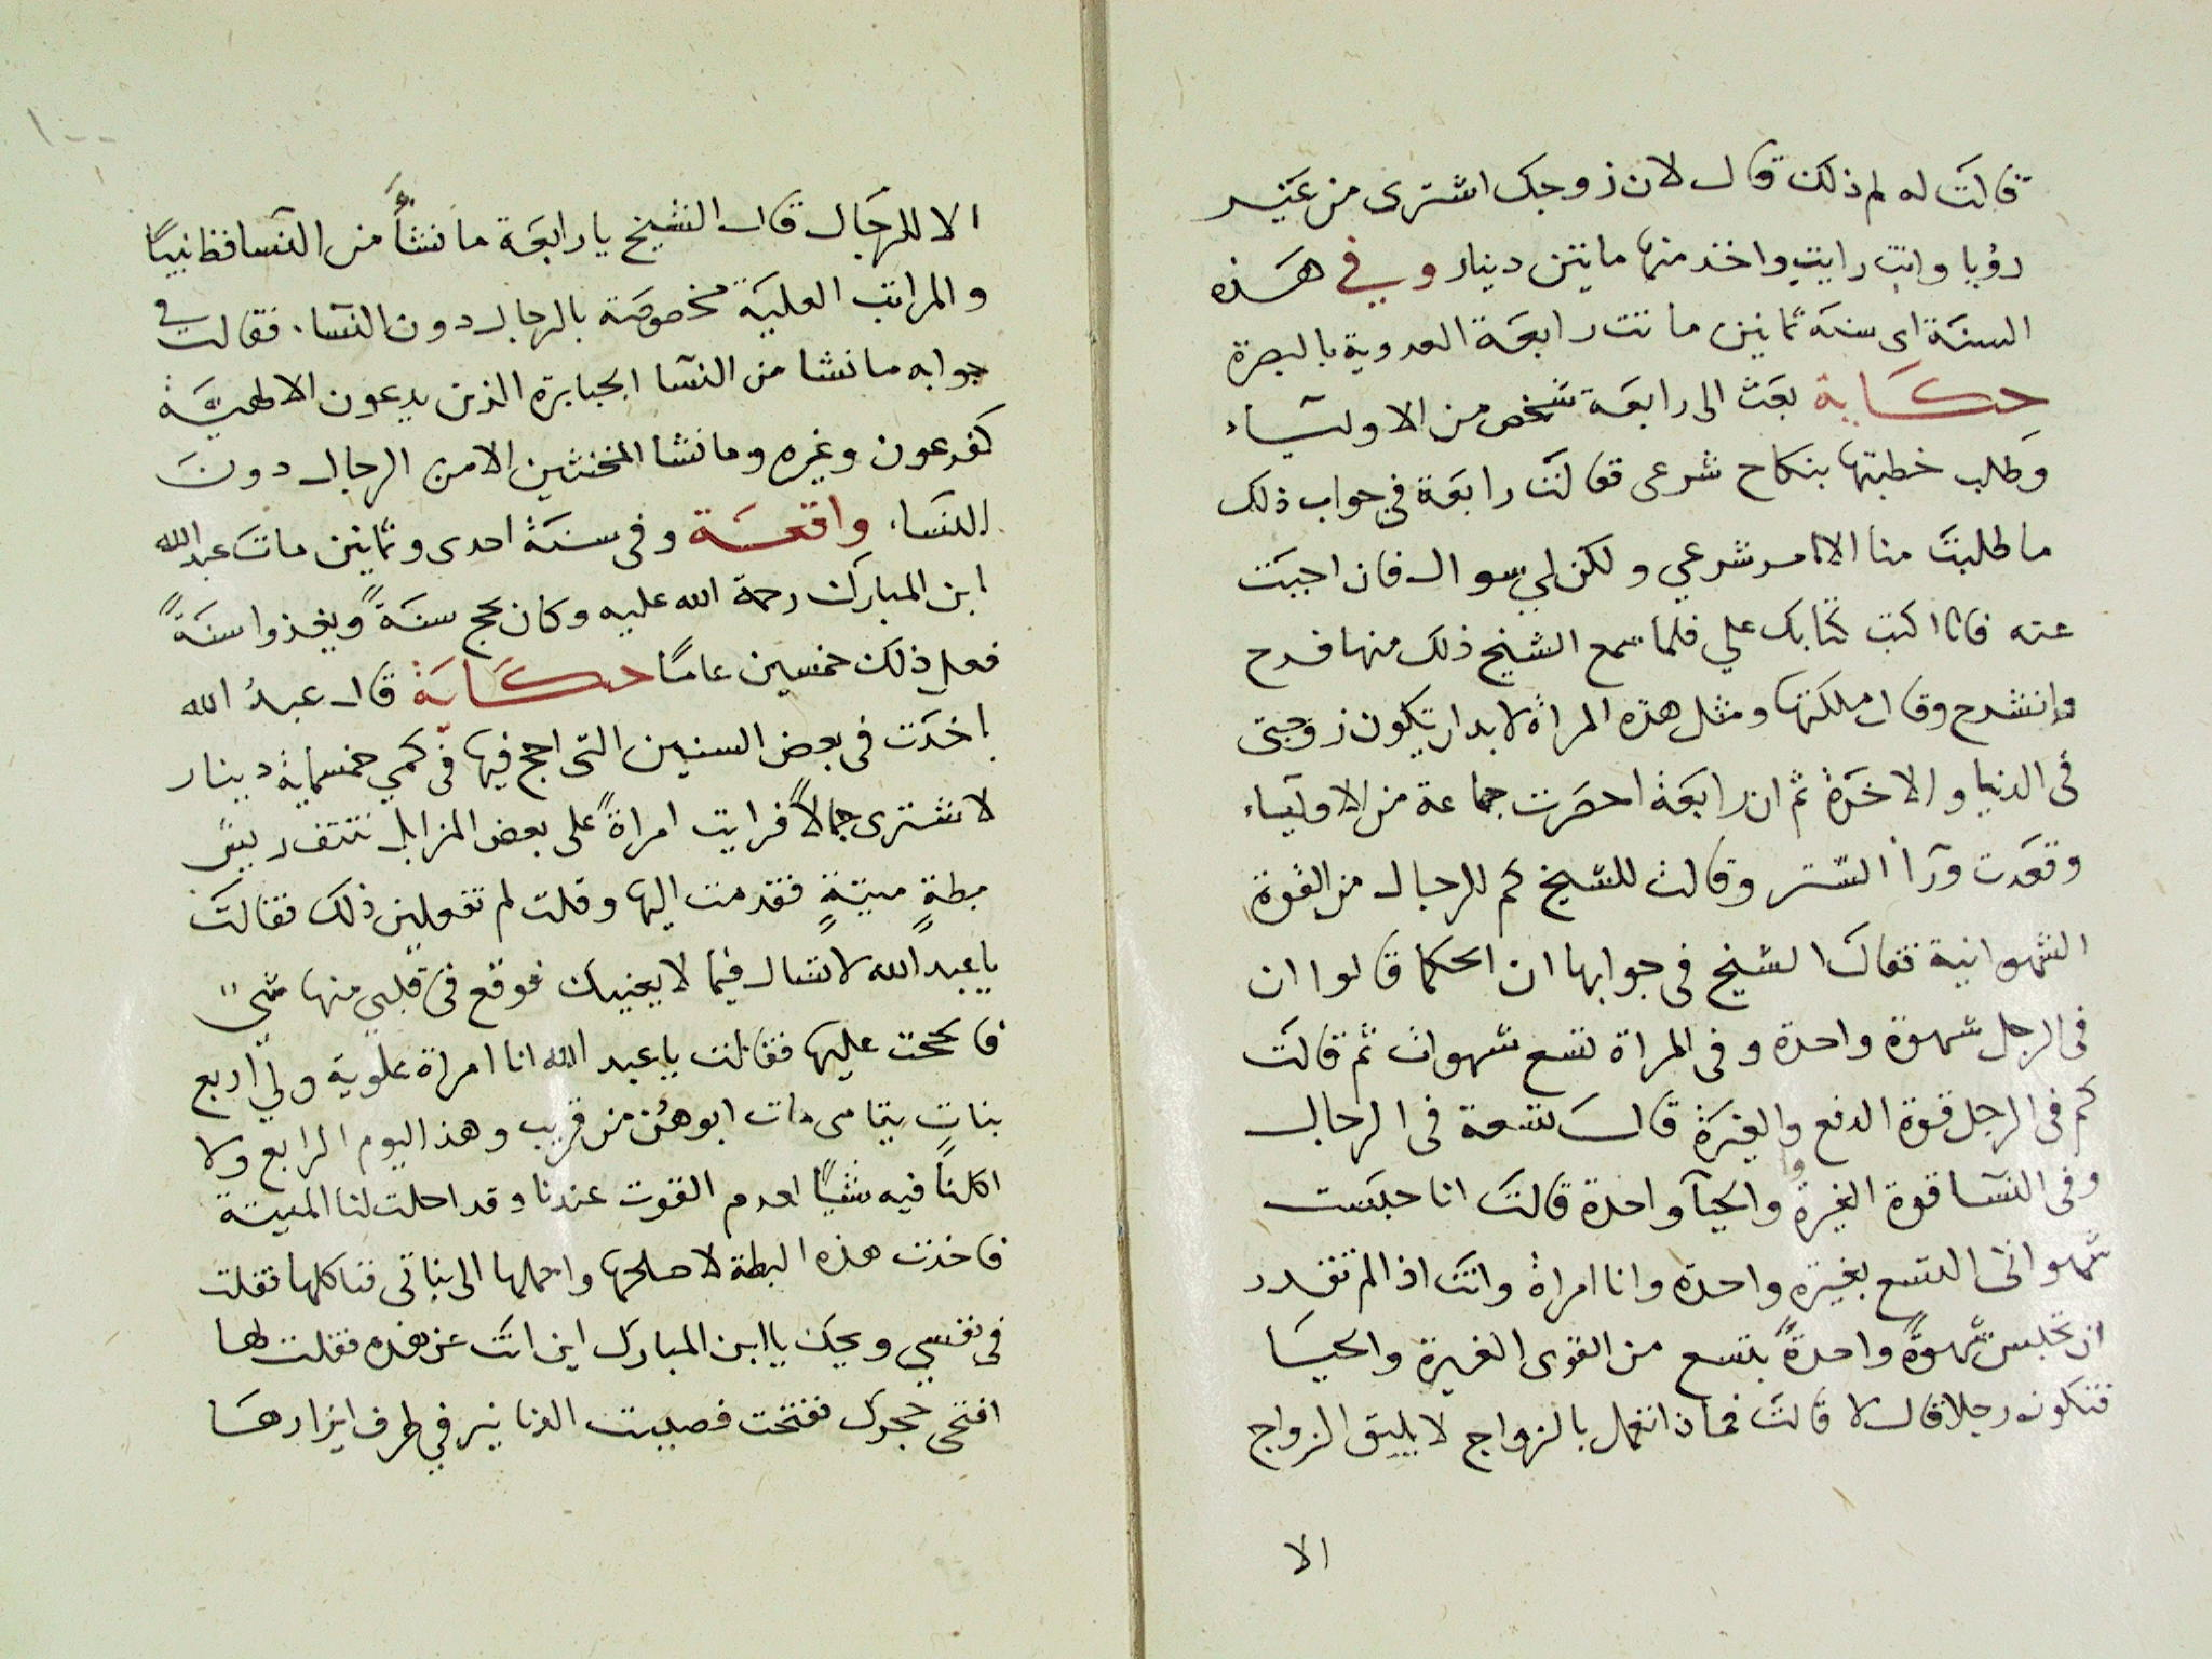 قالت له لم ذلك قال لان زوجك اشترى من غير
رؤيا وانت رايت واخذ منها مايتين دينار وفي هذه
السنة اى سنة ثمانين ماتت رابعة العدوية بالبصرة
حكاية بعث الى رابعة شخص من الاولياء
وطلب خطبتها بنكاح شرعى فقالت رابعة في جواب ذلك
ما طلبت منا الا امر شرعي ولكن لي سوال فان اجبت
عنه فانا اكتب كتابك علي فلما سمع الشيخ ذلك منها فرح
وانشرح وقال ملكتها ومثل هذه المراة لابد ان تكون زوجتى
فى الدنيا والاخرة ثم ان رابعة احضرت جماعة من الاولياء
وقعدت ورآ الستر وقالت للشيخ كم للرجال من القوة
الشهوانية فقال الشيخ فى جوابها ان الحكما قالوا ان
فى الرجل شهوة واحدة وفى المراة تسع شهوات ثم قالت
كم فى الرجل قوة الدفع والغيرة قال تسعة فى الرجال
وفى النسا قوة الغيرة والحيآ واحدة قالت انا حبست
شهواتى التسع بغيرة واحدة وانا امراة وانت اذا لم تقدر
ان تحبس شهوةً واحدةً بتسع من القوى الغيرة والحيا
فتكون رجلا قال لا قالت فماذا نعمل بالزواج لا يليق الزواج
الا
١٠٠
الا للرجال قال الشيخ يا رابعة ما نشأ من النسا قط نبيًا
والمراتب العلية مخصوصة بالرجال دون النسآ. فقالت في
جوابه ما نشا من النسا الجبابرة الذين يدعون الالهية
كفرعون وغيره وما نشا المخنثين الا من الرجال دون
النساء واقعة وفى سنة احدى وثمانين مات عبد الله
ابن المبارك رحمة الله عليه وكان يحج سنةً ويغزوا سنةً
فعل ذلك خمسين عامًا حكاية قال عبد الله
اخذت فى بعض السنين التى احج فيها فى كمي خمسماية دينار
لاشترى جمالاً فرايت امراةً على بعض المزابل تنتف ريش
بطةٍ ميتةٍ فتقدمت اليها وقلت لم تفعلين ذلك فقالت
يا عبد الله لا تسال فيما لا يعنيك فوقع فى قلبي منها شيً
فالححت عليها فقالت يا عبد الله انا امراة علوية ولي اربع
بنات يتامى مات ابوهن من قريب وهذا اليوم الرابع ولا
اكلنا فيه شيًا لعدم القوت عندنا وقد احلت لنا الميتة
فاخذت هذه البطة لاصلحها واحملها الى بناتى فناكلها فقلت
فى نفسي ويحك يا ابن المبارك اين انت عن هذه فقلت لها
افتحى حجرك ففتحت فصببت الدنانير في طرف ايزارها